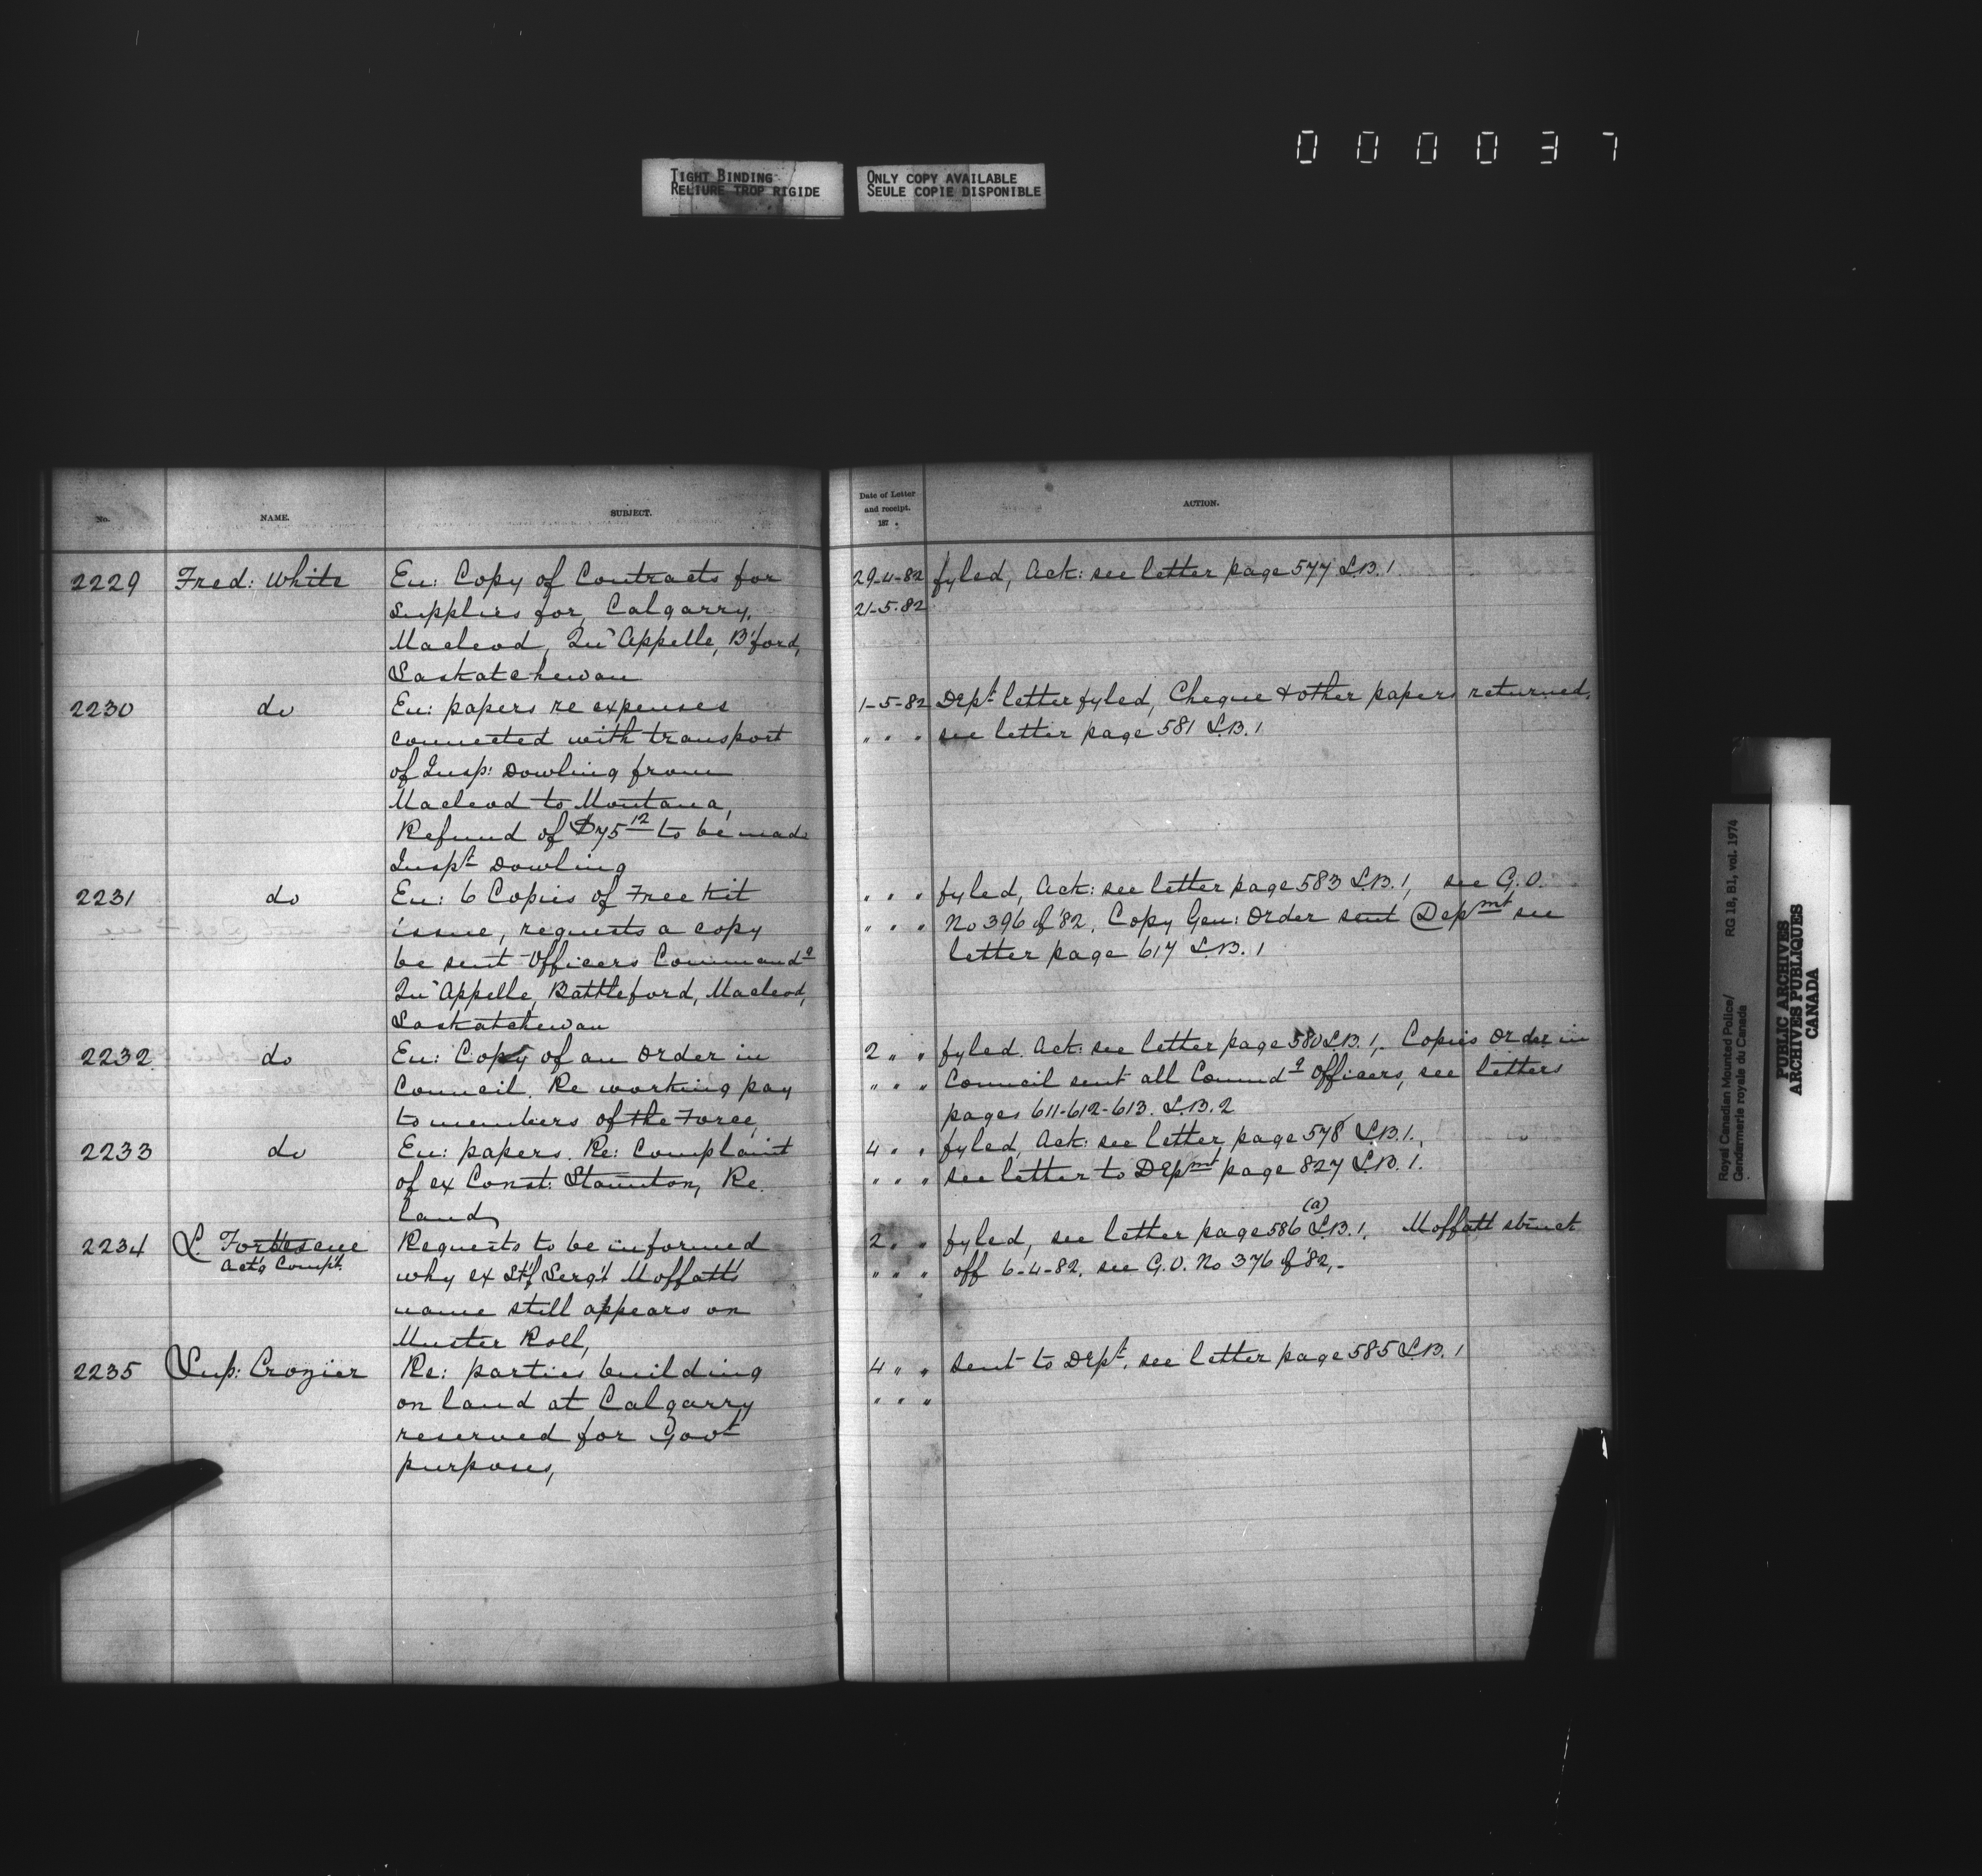 0 0 0 0 3 7
TIGHT BINDING
RELIURE TROP RIGIDE
ONLY COPY AVAILABLE
SEULE COPIE DISPONIBLE
No.
NAME.
SUBJECT.
2229 Fred: White En: Copy of Contracts for
supplies for, Calgarry,
Macleod, Qu'Appelle, B'ford,
Saskatchewan
2230 do En: papers re expenses
connected with transport
of Insp: Dowling from
Macleod to Montana,
Refund of $75 12 to be made
Inspt Dowling
2231 do En: 6 Copies of Free Kit
issue, requests a copy
be sent Officers Commandg
Qu'Appelle, Battleford, Macleod,
Saskatchewan
2232 do En: Copy of an Order in
Council. Re working pay
to members of the Force,
2233 do En: papers. Re: Complaint
of ex Const: Staunton, Re.
land,
2234 L. Fortescue Requests to be informed
Act'g Compt.
why ex Stf Serg't Moffatt's
name still appears on
Muster Roll,
2235 Sup: Crozier Re: parties building
on land at Calgarry
reserved for Govt
purposes,
Date of Letter
and receipt.
187 .
ACTION.
29-4-82 fyled, Ack: see letter page 577 L.B. 1
21-5-82
1-5-82 Dept letter fyled, Cheque & other papers returned,
" " " see letter page 581 L.B. 1
" " " fyled, Ack: see letter page 583 L.B. 1, see G.O.
" " " No 396 of '82, Copy Gen: Order sent Depmt see
letter page 617 L.B. 1
2 " " fyled. Ack: see letter page 580 L.B. 1. Copies Order in
" " " Council sent all Commdg Officers, see letters
pages 611-612-613. L.B. 2
4 " " fyled, Ack: see letter page 578 L.B. 1.,
" " " see letter to Depmt page 827 L.B. 1.
(a)
2 " " fyled, see letter page 586 L.B. 1, Moffatt struck
" " " off 6-4-82. see G.O. No 376 of '82,-
4 " " sent to Dept. see letter page 585 L.B. 1
" " "
Royal Canadian Mounted Police/ RG 18, B1, vol. 1974
Gendarmerie royale du Canada
PUBLIC ARCHIVES
ARCHIVES PUBLIQUES
CANADA